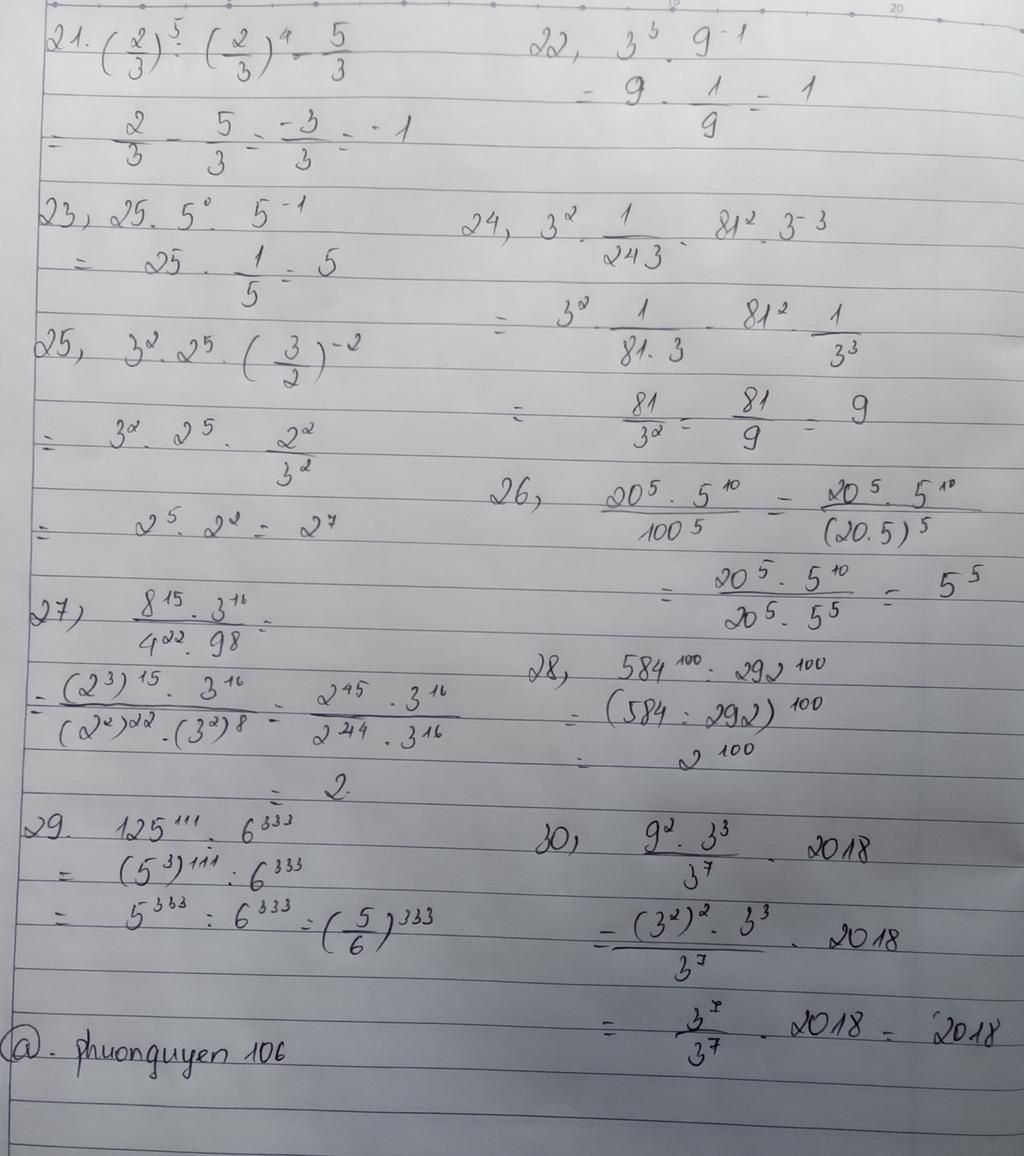 20
21. (2/3)^5 : (2/3)^4 - 5/3
= 2/3 - 5/3 = -3/3 = -1
22, 3^3 . 9^-1
= 9 . 1/9 = 1
23, 25 . 5^0 . 5^-1
= 25 . 1/5 = 5
24, 3^2 . 1/243 . 81^2 . 3^-3
= 3^2 . 1/(81.3) . 81^2 . 1/3^3
= 81/3^2 = 81/9 = 9
25, 3^2 . 2^5 . (3/2)^-2
= 3^2 . 2^5 . 2^2/3^2
= 2^5 . 2^2 = 2^7
26, (20^5 . 5^10)/100^5 = (20^5 . 5^10)/(20.5)^5
= (20^5 . 5^10)/(20^5 . 5^5) = 5^5
27, (8^15 . 3^16)/(4^22 . 98) =
= ((2^3)^15 . 3^16)/((2^2)^22 . (3^2)^8) = (2^45 . 3^16)/(2^44 . 3^16)
= 2.
28, 584^100 : 292^100
= (584 : 292)^100
= 2^100
29. 125^111 : 6^333
= (5^3)^111 : 6^333
= 5^333 : 6^333 = (5/6)^333
30, (9^2 . 3^3)/3^7 . 2018
= ((3^2)^2 . 3^3)/3^7 . 2018
= 3^7/3^7 . 2018 = 2018
@. phuonguyen 106